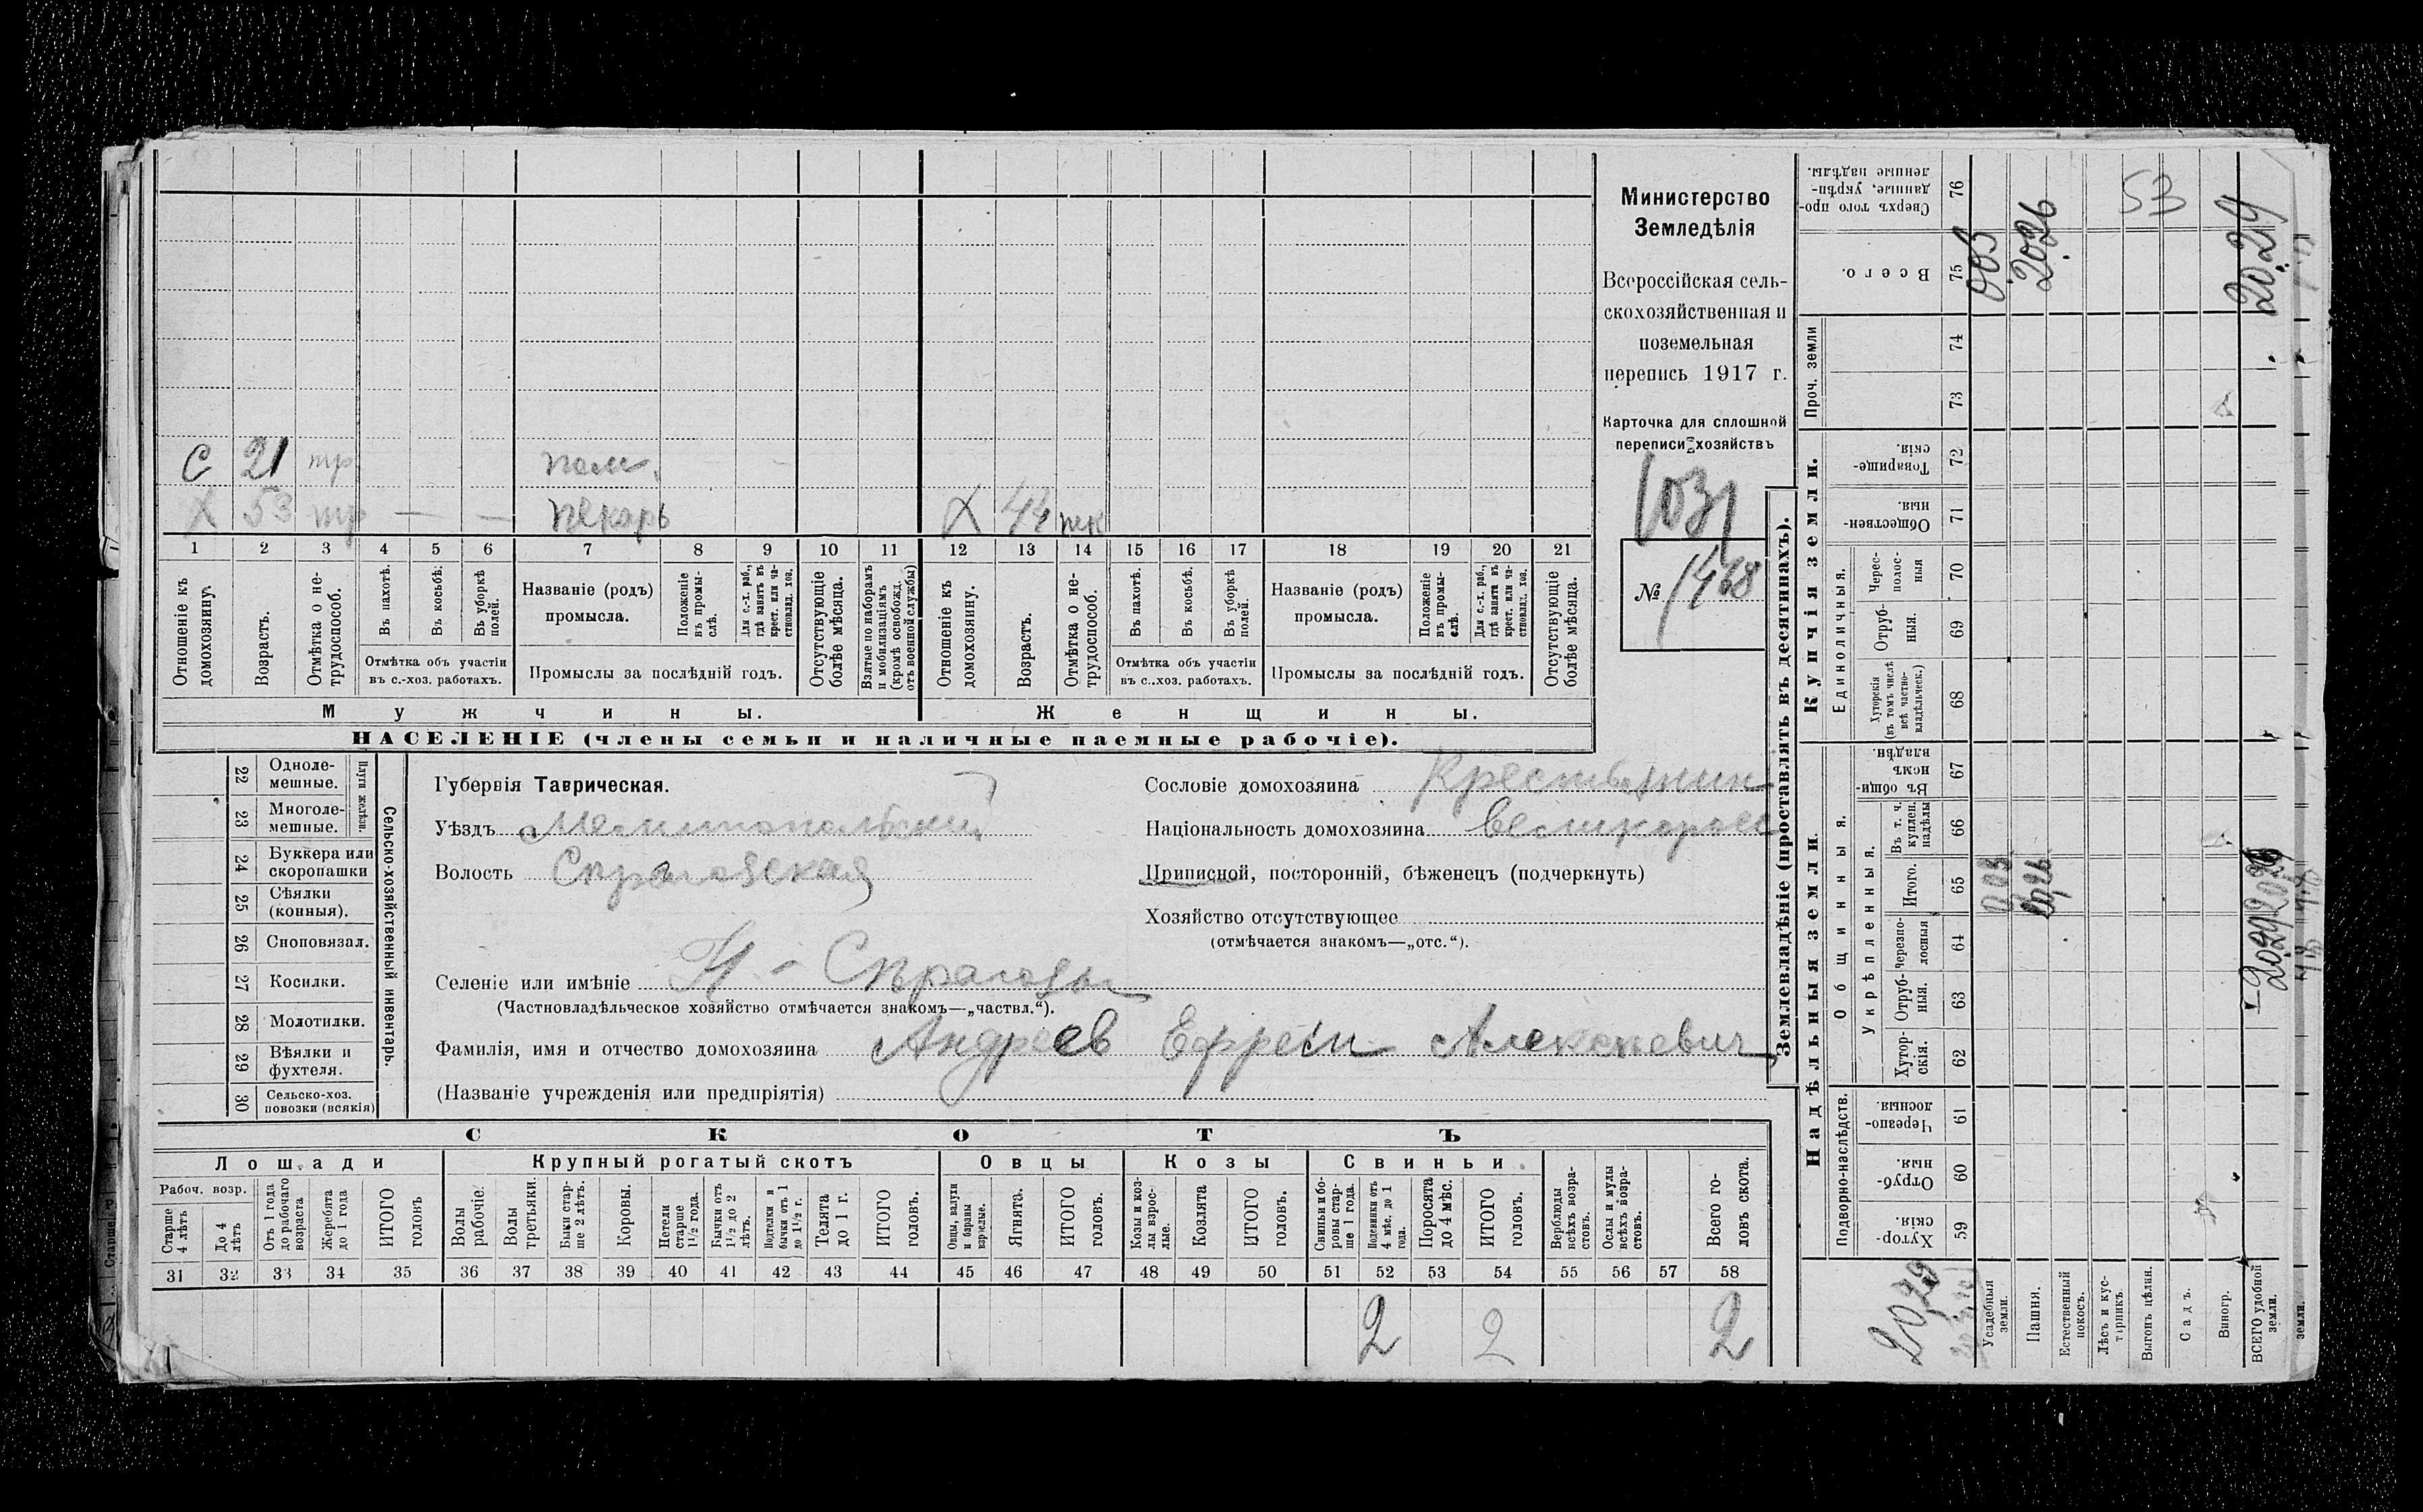 Министерство
Земледѣлія
Всероссійская сель-
скохозяйственная и
поземельная
перепись 1917 г.
Карточка для сплошной
переписи хозяйствъ
1031
№ 1468
С 21 тр пом.
Х 53 тр — — пекарь Х 44
1 2 3 4 5 6 7 8 9 10 11 12 13 14 15 16 17 18 19 20 21
Отношеніе къ домохозяину.
Возрастъ.
Отмѣтка о не-трудоспособ.
Въ пахотѣ.
Въ косьбѣ.
Въ уборкѣ полей.
Отмѣтка объ участіи
въ с.-хоз. работахъ.
Названіе (родъ)
промысла.
Положеніе въ промы-слѣ.
Для с.-х. раб., гдѣ занятъ въ крест. или ча-стновлад. хоз.
Промыслы за послѣдній годъ.
Отсутствующіе болѣе мѣсяца.
Взятые по наборамъ и мобилизаціямъ (кромѣ освобожд. отъ военной службы)
Отношеніе къ домохозяину.
Возрастъ.
Отмѣтка о не-трудоспособ.
Въ пахотѣ.
Въ косьбѣ.
Въ уборкѣ полей.
Отмѣтка объ участіи
въ с.-хоз. работахъ.
Названіе (родъ)
промысла.
Положеніе въ промы-слѣ.
Для с.-х. раб., гдѣ занята въ крест. или ча-стновлад. хоз.
Промыслы за послѣдній годъ.
Отсутствующіе болѣе мѣсяца.
Мужчины.
Женщины.
НАСЕЛЕНІЕ (члены семьи и наличные наемные рабочіе).
22 Одноле-мешные.
23 Многоле-мешные.
Плуги желѣзн.
24 Буккера или скоропашки
25 Сѣялки (конныя).
26 Сноповязал.
27 Косилки.
28 Молотилки.
29 Вѣялки и фухтеля.
30 Сельско-хоз. повозки (всякія)
Сельско-хозяйственный инвентарь.
Губернія Таврическая.
Уѣздъ Мелитопольский
Волость
Сословіе домохозяина Крестьянин
Національность домохозяина великоросс
Приписной, посторонній, бѣженецъ (подчеркнуть)
Хозяйство отсутствующее
(отмѣчается знакомъ—„отс.“).
Селеніе или имѣніе
(Частновладѣльческое хозяйство отмѣчается знакомъ—„частвл.“).
Фамилія, имя и отчество домохозяина Андреев Ефрем Алексеевич
(Названіе учрежденія или предпріятія)
СКОТЪ
Лошади
Крупный рогатый скотъ
Овцы
Козы
Свиньи
Рабоч. возр.
Старше 4 лѣтъ
До 4 лѣтъ
Отъ 1 года до рабочаго возраста
Жеребята до 1 года
ИТОГО головъ
Волы рабочіе.
Волы третьяки.
Быки стар-ше 2 лѣтъ.
Коровы.
Нетели старше 1½ года.
Бычки отъ 1½ до 2 лѣтъ.
Подтелки и бычки отъ 1 до 1½ г.
Телята до 1 г.
ИТОГО головъ.
Овцы, валухи и бараны взрослые.
Ягнята.
ИТОГО головъ.
Козы и коз-лы взрос-лые.
Козлята
ИТОГО головъ.
Свиньи и бо-ровы стар-ше 1 года.
Подсвинки отъ 4 мѣс. до 1 года.
Поросята до 4 мѣс.
ИТОГО головъ.
Верблюды всѣхъ возра-стовъ.
Ослы и мулы всѣхъ возра-стовъ.
Всего го-ловъ скота.
31 32 33 34 35 36 37 38 39 40 41 42 43 44 45 46 47 48 49 50 51 52 53 54 55 56 57 58
2 2 2
Землевладѣніе (проставлять въ десятинахъ).
Надѣльныя земли.
Купчія земли.
Проч. земли
Подворно-наслѣдств.
Общинныя.
Укрѣпленныя.
Единоличныя.
Хутор-скія. 59
Отруб-ныя. 60
Черезпо-лосныя. 61
Хутор-скія. 62
Отруб-ныя. 63
Черезпо-лосныя 64
Итого. 65
Въ т. ч. куплен. надѣлы 66
Въ общи-номъ владѣн. 67
Хуторскія (въ томъ числѣ всѣ частно-владѣльческ.) 68
Отруб-ныя. 69
Черес-полос-ныя 70
Обществен-ныя. 71
Товарище-скія. 72
73
74
Всего. 75
Сверхъ того про-данные, укрѣп-ленные надѣлы. 76
Усадебныя земли. 003 003
Пашня. 2026
Естественный покосъ.
Лѣсъ и кус-тарникъ.
Выгонъ цѣлин. 53
Садъ.
Виногр.
ВСЕГО удобной земли. 2029
земли.
2029